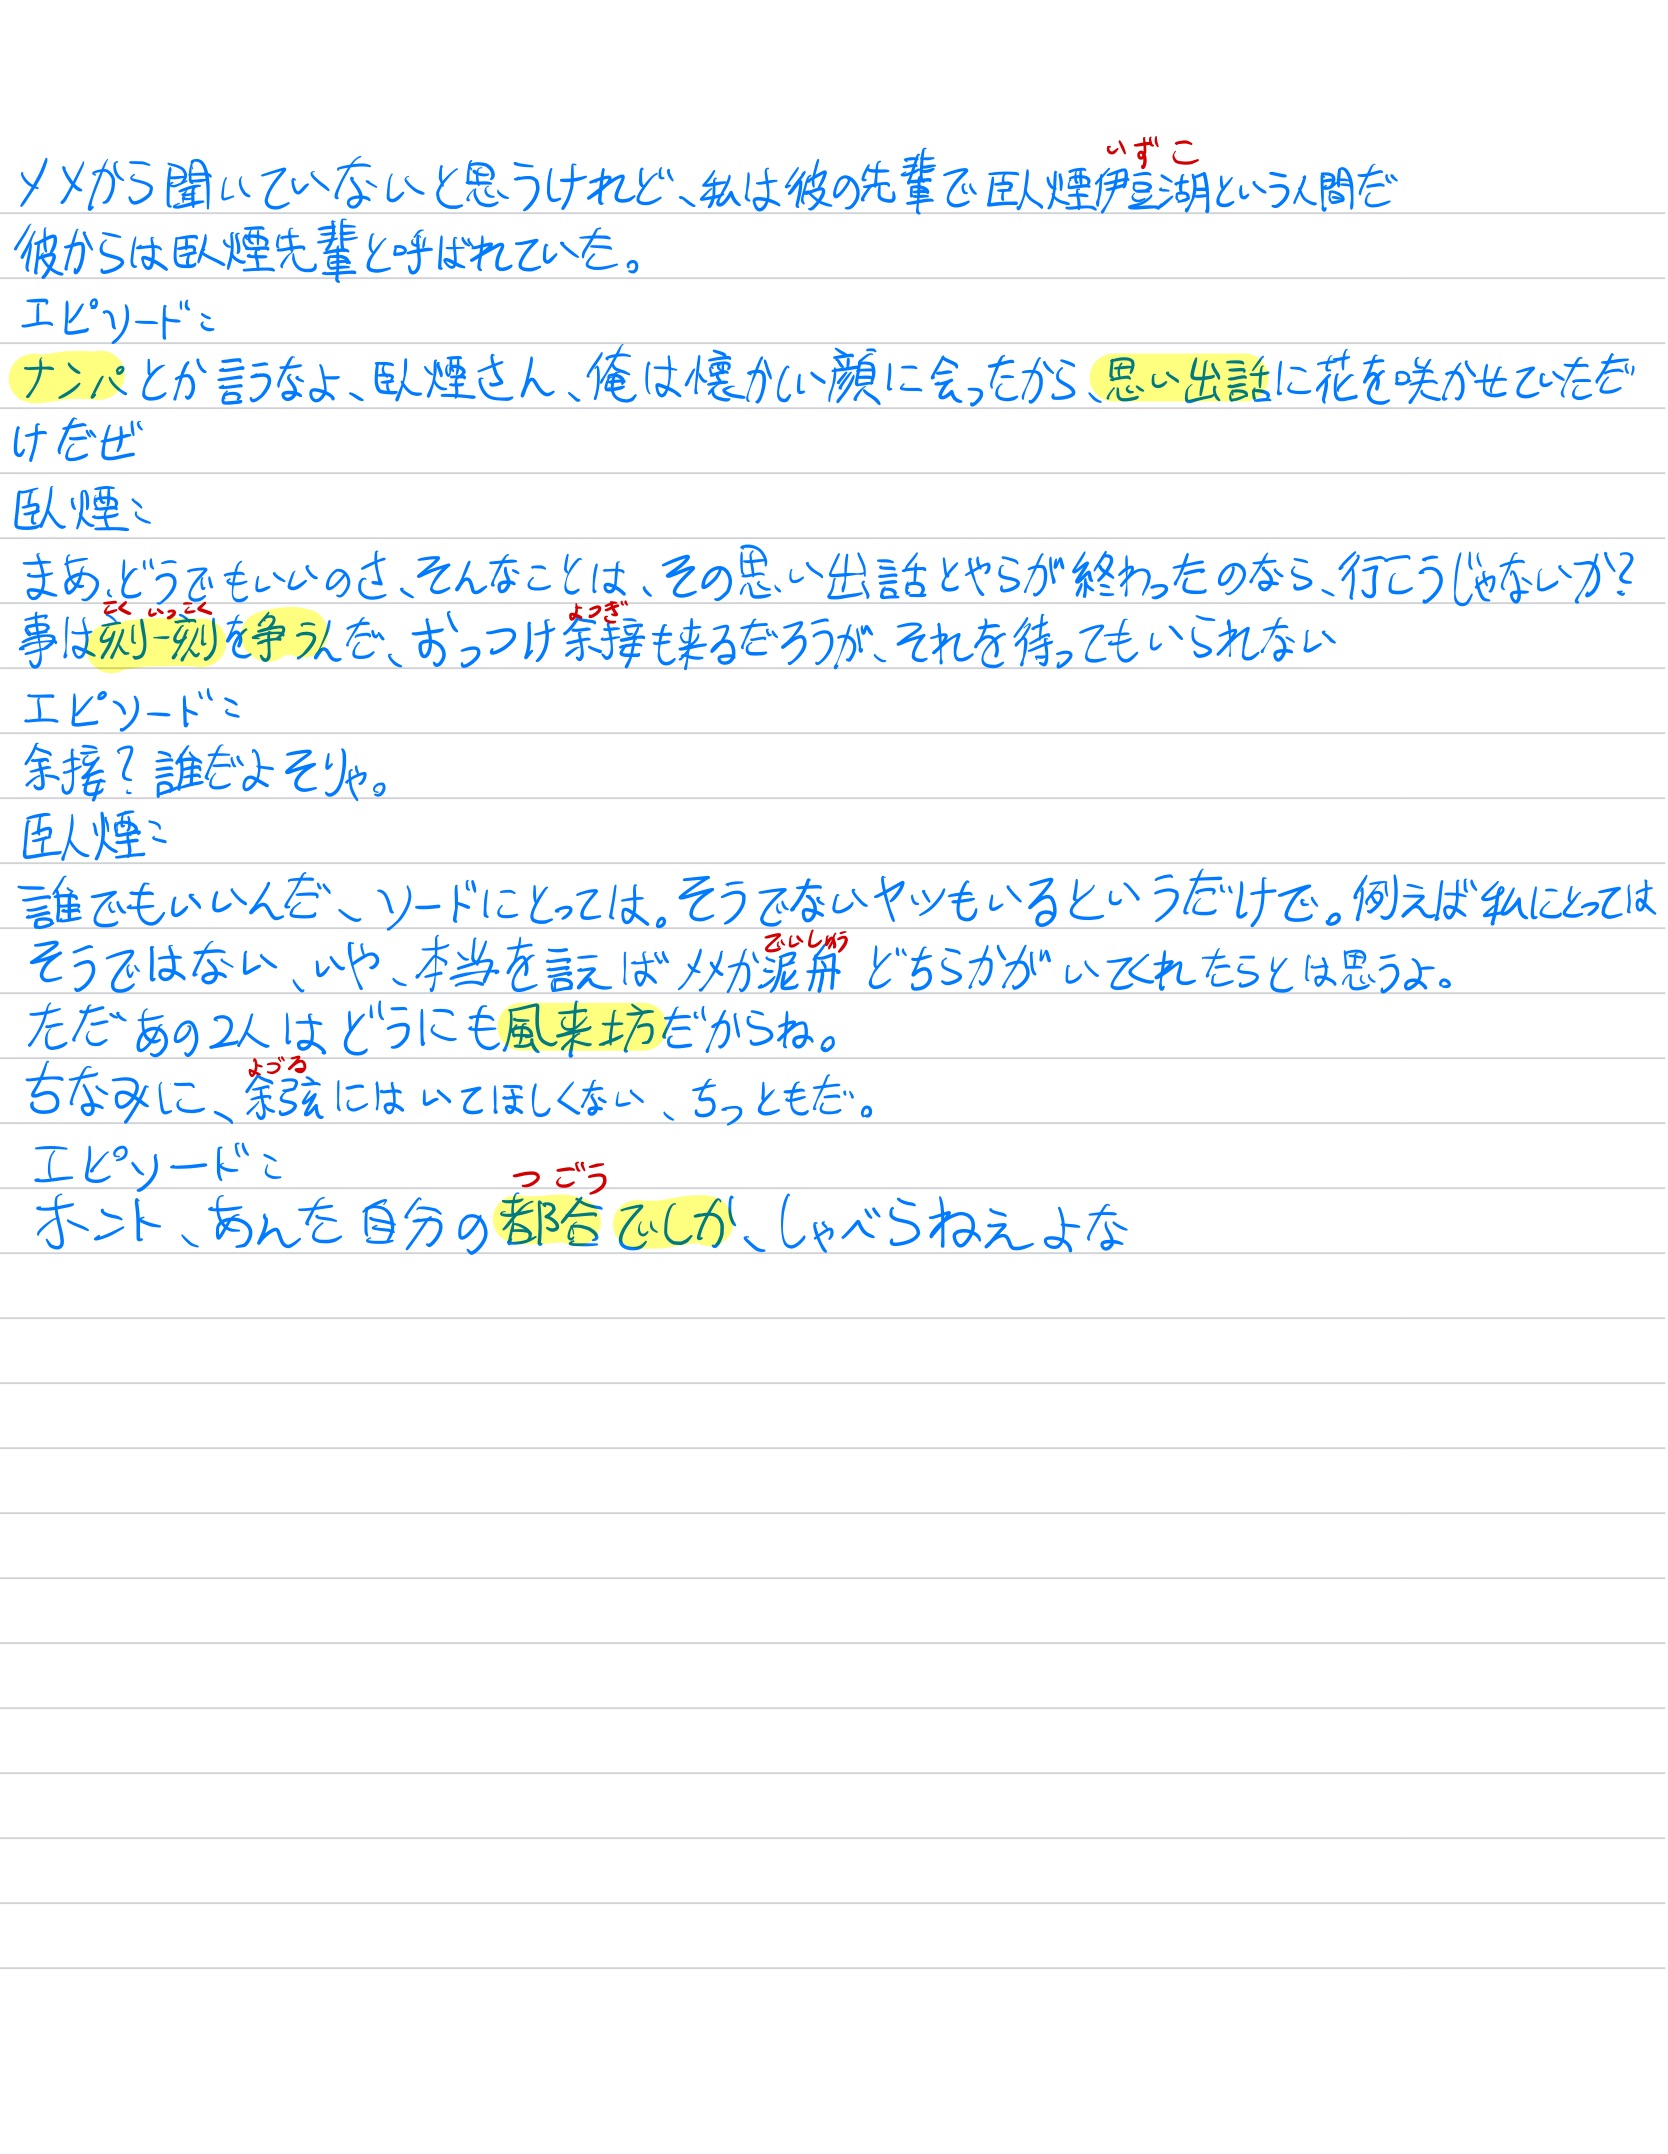 いずこ
メメから聞いていないと思うけれど、私は彼の先輩で臥煙伊豆湖という人間だ
彼からは臥煙先輩と呼ばれていた。
エピソード:
ナンパとか言うなよ、臥煙さん、俺は懐かしい顔に会ったから、思い出話に花を咲かせていただ
けだぜ
臥煙:
まあ、どうでもいいのさ、そんなことは、その思い出話とやらが終わったのなら、行こうじゃないか?
こく いっこく よつぎ
事は刻一刻を争うんだ、おっつけ余接も来るだろうが、それを待ってもいられない
エピソード:
余接?誰だよそりゃ。
臥煙:
誰でもいいんだ、ソードにとっては。そうでないヤツもいるというだけで。例えば私にとっては
でいしゅう
そうではない、いや、本当を言えばメメか泥舟どちらかがいてくれたらとは思うよ。
ただあの2人はどうにも風来坊だからね。
よづる
ちなみに、余弦にはいてほしくない、ちっともだ。
エピソード:
つごう
ホント、あんた自分の都合でしか、しゃべらねえよな